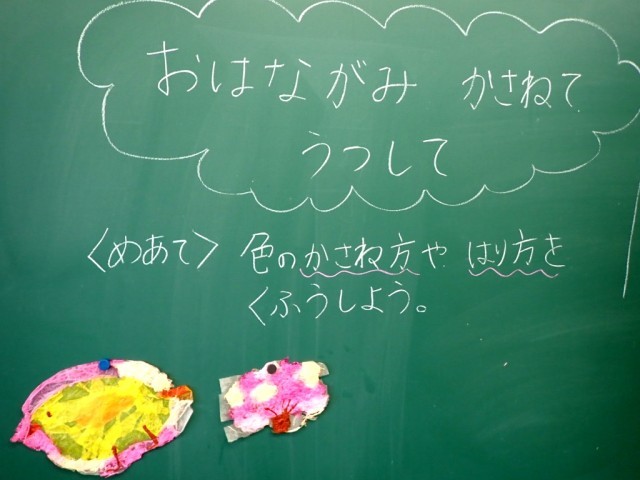 おはながみ かさねて
うつして
〈めあて〉 色のかさね方や はり方を
くふうしよう。